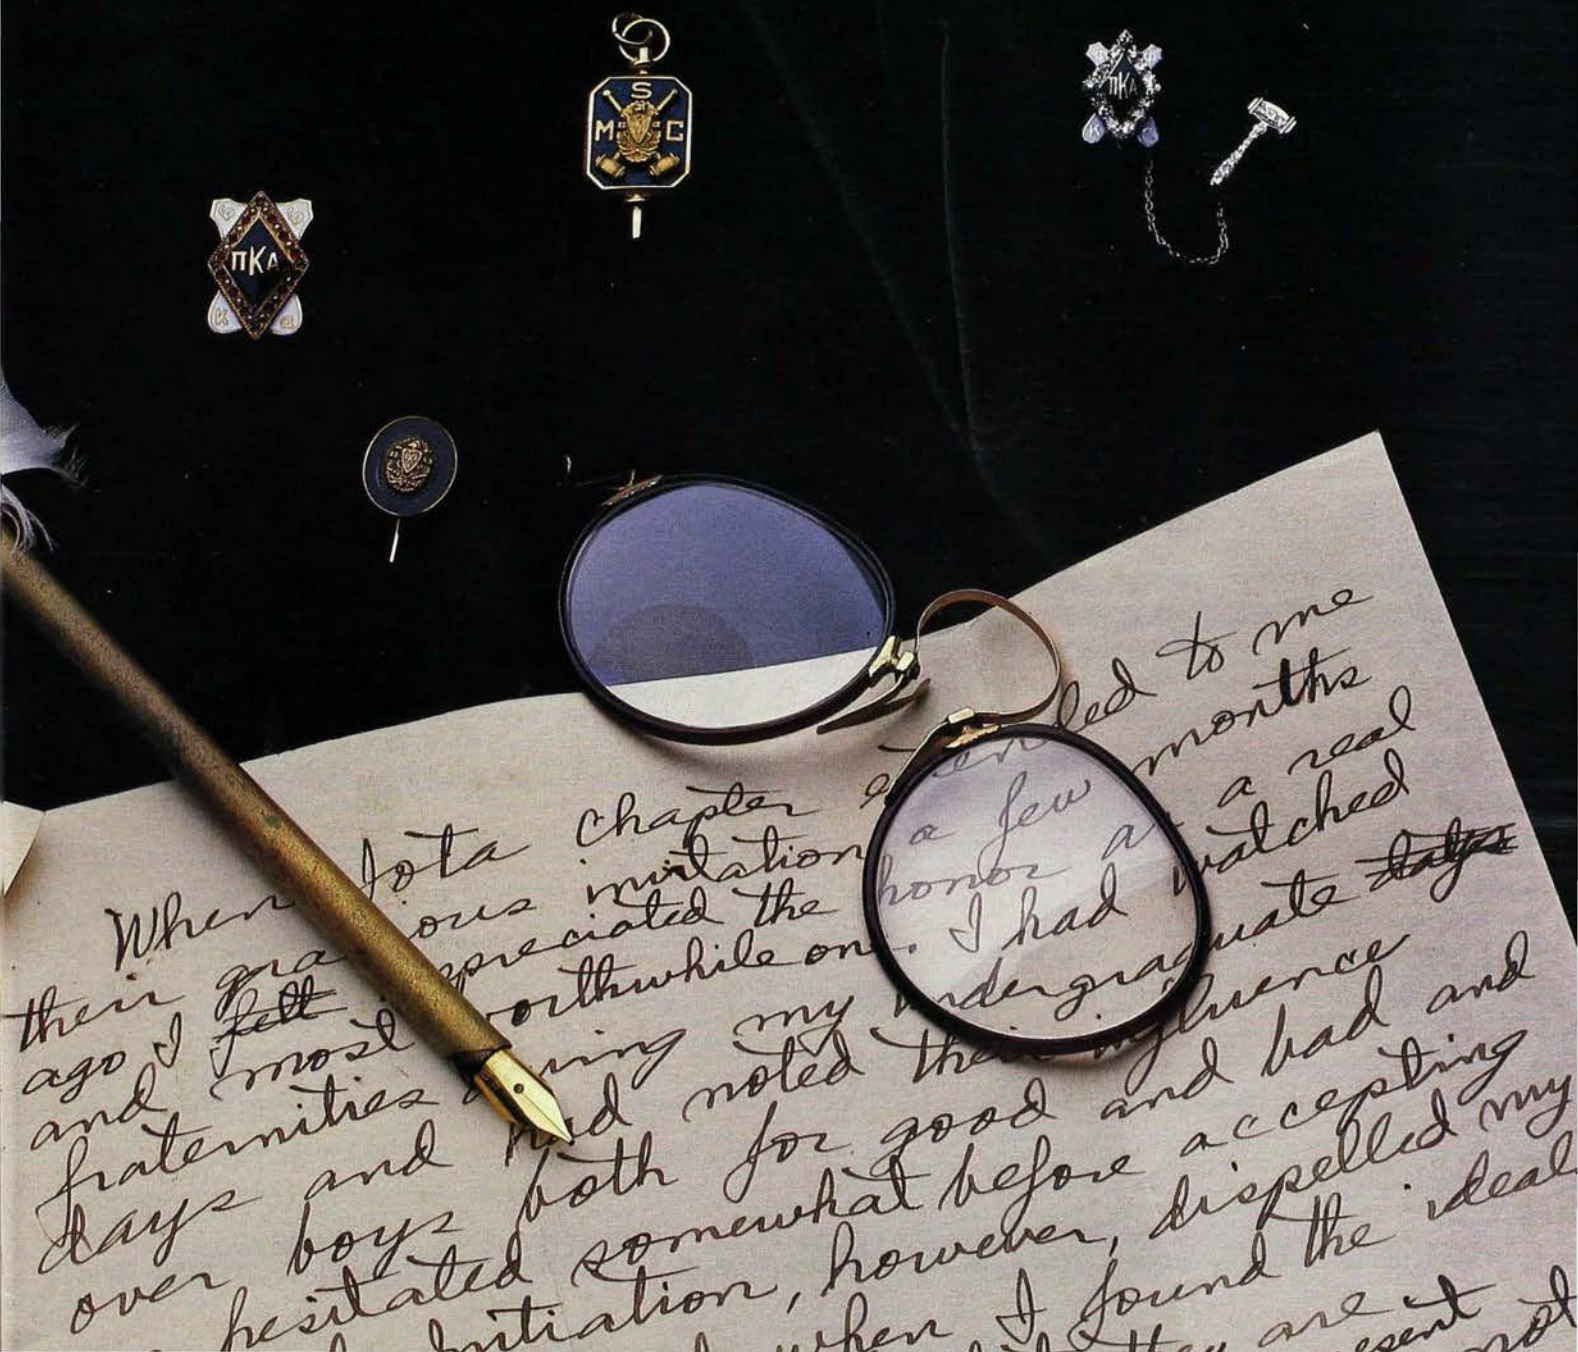 S
M C
ΠΚΑ
ΠΚΑ
When Iota chapter extended to me
their gracious invitation a few months
ago I felt appreciated the honor as a real
and most worthwhile one. I had watched
fraternities during my undergraduate days
days and had noted their influence
over boys both for good and bad and
hesitated somewhat before accepting
initiation, however, dispelled my
when I found the ideal
they are
esent
not